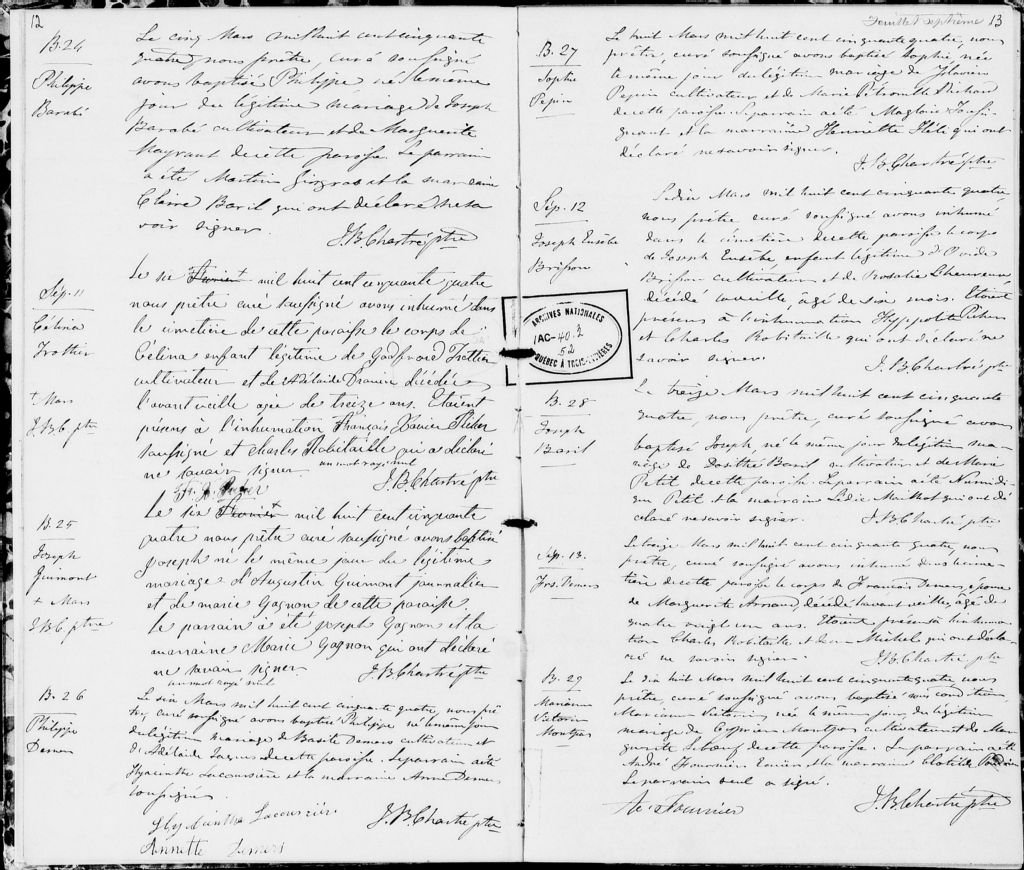 12
B. 24
Philippe
Barabé
Le cinq Mars mil huit cent cinquante
quatre, nous prêtre, curé soussigné
avons baptisé Philippe né le même
jour du légitime mariage de Joseph
Barabé cultivateur et de Marguerite
Mayrant de cette paroisse. Le parrain
a été Martin Gingras et la marraine
Claire Baril qui ont déclaré ne sa
voir signer.
J. B. Chartré ptre
Sép. 11
Célina
Trottier
+ Mars
J. B. C ptre
Le six Fevrier + mil huit cent cinquante quatre
nous prêtre curé soussigné avons inhumé dans
le cimetière de cette paroisse le corps de
Célina enfant légitime de Godfroid Trottier
cultivateur et de Adélaide Drouin décédée
l'avant veille agée de treize ans. Etoient
présens à l'inhumation François Xavier Picher
soussigné et Charles Robitaille qui a déclaré
ne savoir signer un mot rayé nul
J. B. Chartré ptre
B. 25
Joseph
Guimont
+ Mars
J. B. C ptre
Le six Fevrier + mil huit cent cinquante
quatre nous prêtre curé soussigné avons baptisé
Joseph né le même jour du légitime
mariage d'Augustin Guimont journalier
et de marie Gagnon de cette paroisse.
Le parrain a été Joseph Gagnon et la
marraine Marie Gagnon qui ont déclaré
ne savoir signer.
un mot rayé nul
J. B. Chartré ptre
B. 26
Philippe
Demers
Le six Mars mil huit cent cinquante quatre, nous prê
tre, curé soussigné avons baptisé Philippe né le même jour
du légitime mariage de Basile Demers cultivateur et
d'Adélaide de cette paroisse. Le parrain a été
Hyacinthe Lacoursière et la marraine Anne Demers
soussignés.
Hyacinthe Lacoursière
J. B. Chartré ptre
Annette Demers
Feuillet Septième 13
B. 27
Sophie
Pepin
Le huit Mars mil huit cent cinquante quatre, nous
prêtre, curé soussigné avons baptisé Sophie, née
le même jour du légitime mariage de Flavien
Pepin cultivateur et de Marie Pétronille Richard
de cette paroisse. Le parrain a été Magloire
et la marraine Henriette qui ont
déclaré ne savoir signer.
J. B. Chartré ptre
Sép. 12
Joseph Eusèbe
Brisson
Le dix Mars mil huit cent cinquante quatre,
nous prêtre curé soussigné avons inhumé
dans le cimetière de cette paroisse le corps
de Joseph Eusèbe enfant légitime d'Ovide
Brisson cultivateur et de Rosalie Lheureux
décédé la veille, âgé de six mois. Etoient
présens à l'inhumation Hyppolite Picher
et Charles Robitaille qui ont déclaré ne
savoir signer.
J. B. Chartré ptre
ARCHIVES NATIONALES
IAC-40.2
52
QUÉBEC À TROIS-RIVIÈRES
B. 28
Joseph
Baril
Le treize Mars mil huit cent cinquante
quatre, nous prêtre, curé soussigné avons
baptisé Joseph, né le même jour du légitime ma
riage de Dosithé Baril cultivateur et de Marie
Petit de cette paroisse. Le parrain a été
Petit et la marraine Lidie Mailhot qui ont dé
claré ne savoir signer.
J. B. Chartré ptre
Sép. 13.
Frs. Demers
Le treize Mars mil huit cent cinquante quatre, nous
prêtre, curé soussigné avons inhumé dans le cime
tière de cette paroisse le corps de François Demers, époux
de Marguerite Arnaud, décédé l'avant veille, âgé de
quatre vingt un ans. Etoient présens à l'inhuma
tion Charles Robitaille et Michel qui ont décla
ré ne savoir signer.
J. B. Chartré ptre
B. 29
Marianne
Victorine
Montpas
Le dix huit Mars mil huit cent cinquante quatre, nous
prêtre, curé soussigné avons baptisé sous condition
Marianne Victorine née le même jour, du légitime
mariage de Cyprien Montpas cultivateur et de Mar
guerite Leboeuf de cette paroisse. Le parrain a été
André Fournier et la marraine Clotilde
Le parrain seul a signé.
A. Fournier
J. B. Chartré ptre